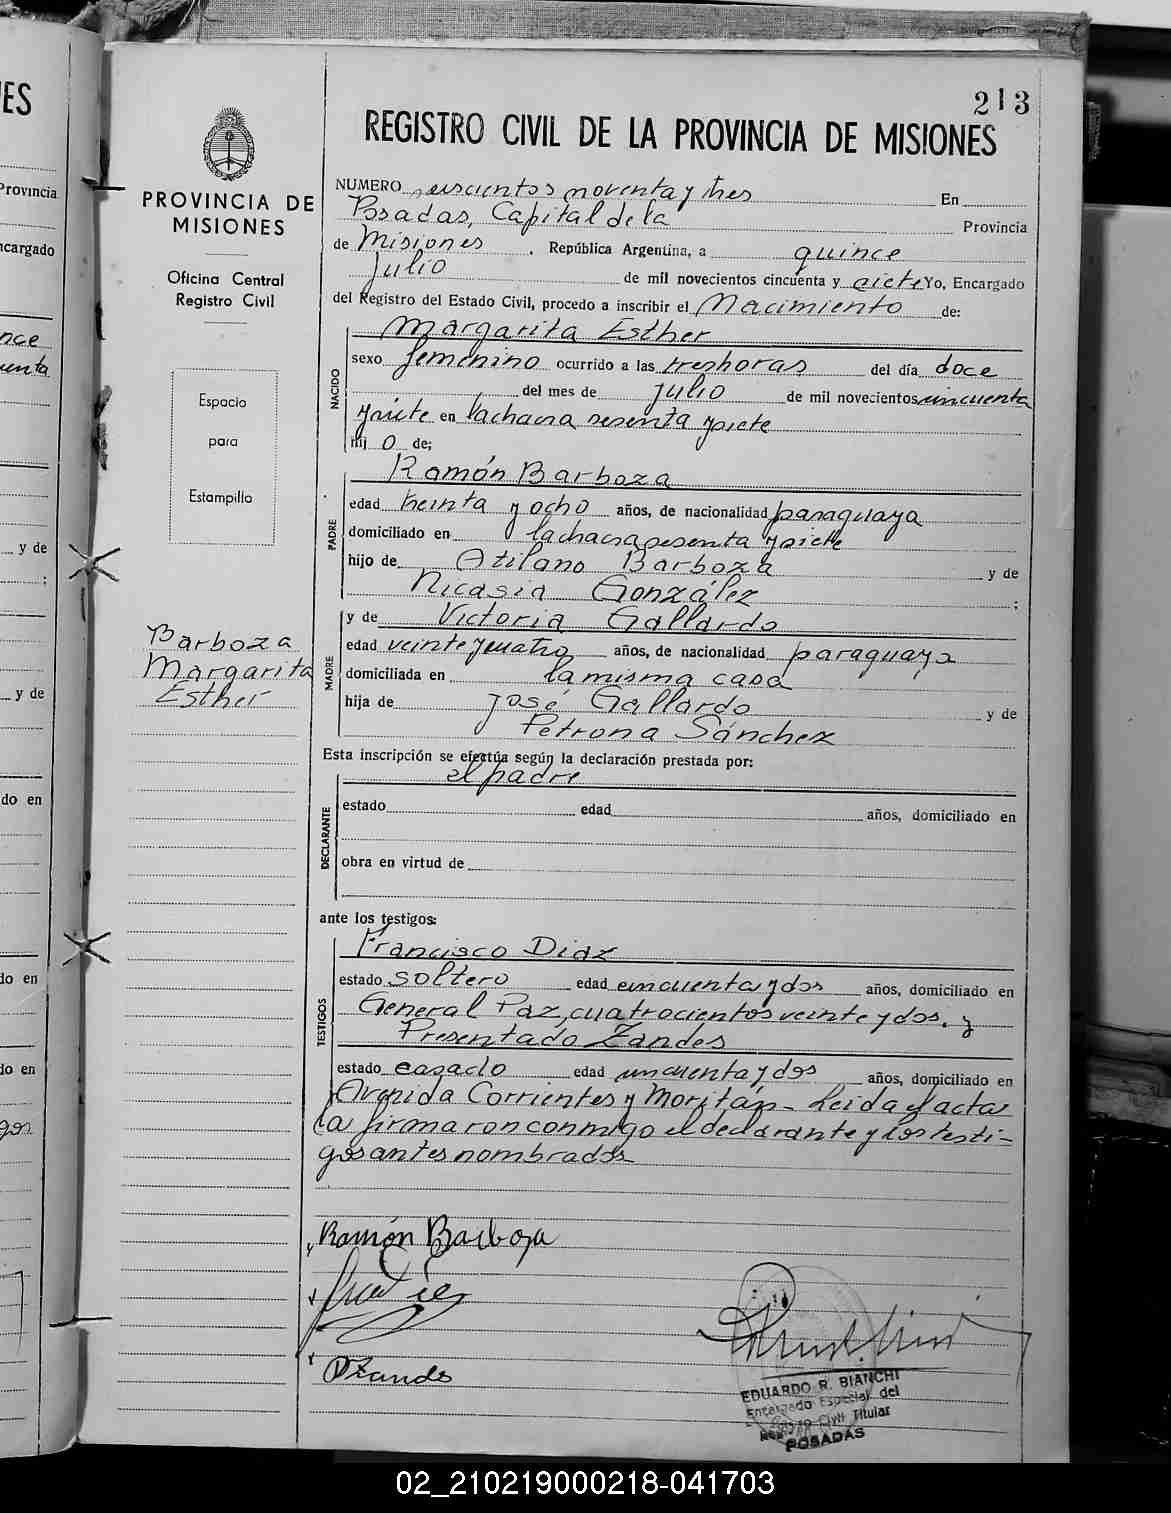 213
REGISTRO CIVIL DE LA PROVINCIA DE MISIONES
PROVINCIA DE
MISIONES
Oficina Central
Registro Civil
Espacio
para
Estampilla
Barboza
Margarita
Esther
NUMERO seiscientos noventa y tres En
Posadas, Capital de la Provincia
de Misiones, República Argentina, a quince
Julio de mil novecientos cincuenta y siete Yo, Encargado
del Registro del Estado Civil, procedo a inscribir el Nacimiento de:
NACIDO
Margarita Esther
sexo femenino ocurrido a las tres horas del día doce
del mes de julio de mil novecientos cincuenta
y siete en la chacra sesenta y siete
hij o de;
PADRE
Ramón Barboza
edad treinta y ocho años, de nacionalidad paraguaya
domiciliado en la chacra sesenta y siete
hijo de Atilano Barboza y de
Nicasia González ;
MADRE
y de Victoria Gallardo
edad veinte y cuatro años, de nacionalidad paraguaya
domiciliada en la misma casa
hija de José Gallardo y de
Petrona Sánchez
Esta inscripción se efectúa según la declaración prestada por:
DECLARANTE
el padre
estado edad años, domiciliado en
obra en virtud de
ante los testigos:
TESTIGOS
Francisco Diaz
estado soltero edad cincuenta y dos años, domiciliado en
General Paz, cuatrocientos veinte y dos, y
Presentado Zandes
estado casado edad cincuenta y dos años, domiciliado en
Avenida Corrientes y Moritán - Leida el acta
la firmaron conmigo el declarante y los testi-
gos antes nombrados
Ramón Barboza
PZandes
EDUARDO R. BIANCHI
Encargado Especial del
Registro Civil Titular
POSADAS
02_210219000218-041703